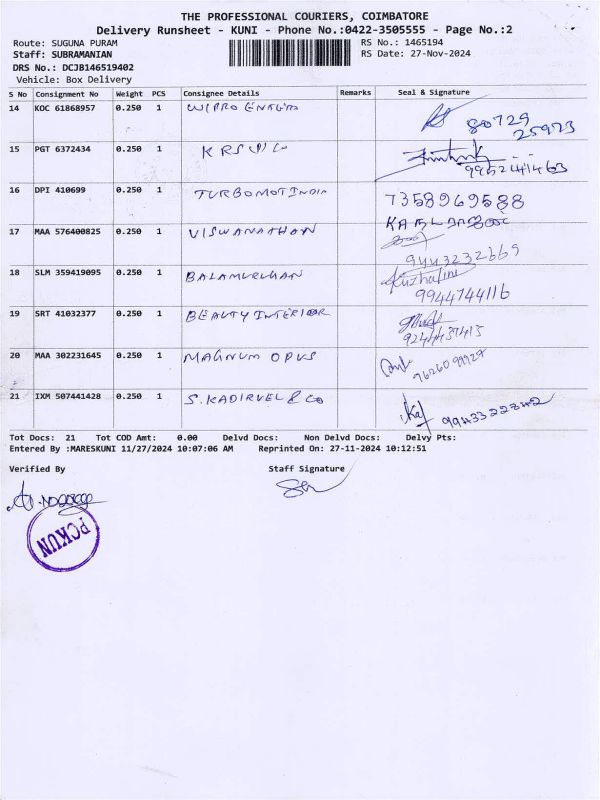 THE PROFESSIONAL COURIERS, COIMBATORE
Delivery Runsheet - KUNI - Phone No.:0422-3505555 - Page No.:2
Route: SUGUNA PURAM RS No.: 1465194
Staff: SUBRAMANIAN RS Date: 27-Nov-2024
DRS No.: DCJB146519402
Vehicle: Box Delivery
S No Consignment No Weight PCS Consignee Details Remarks Seal & Signature
14 KOC 61868957 0.250 1 WIPRO ENTERP 80729
25973
15 PGT 6372434 0.250 1 KRS
16 DPI 410699 0.250 1 TURBOMOT INDIA 7358969588
17 MAA 576400825 0.250 1 VISWANATHAN
9443232669
18 SLM 359419095 0.250 1 BALAMURUGAN Kuzhalini
9944744116
19 SRT 41032377 0.250 1 BEAUTY INTERIOR
20 MAA 302231645 0.250 1 MAGNUM OPUS
21 IXM 507441428 0.250 1 S.KADIRVEL & CO
Tot Docs: 21 Tot COD Amt: 0.00 Delvd Docs: Non Delvd Docs: Delvy Pts:
Entered By :MARESKUNI 11/27/2024 10:07:06 AM Reprinted On: 27-11-2024 10:12:51
Verified By Staff Signature
PCKUN